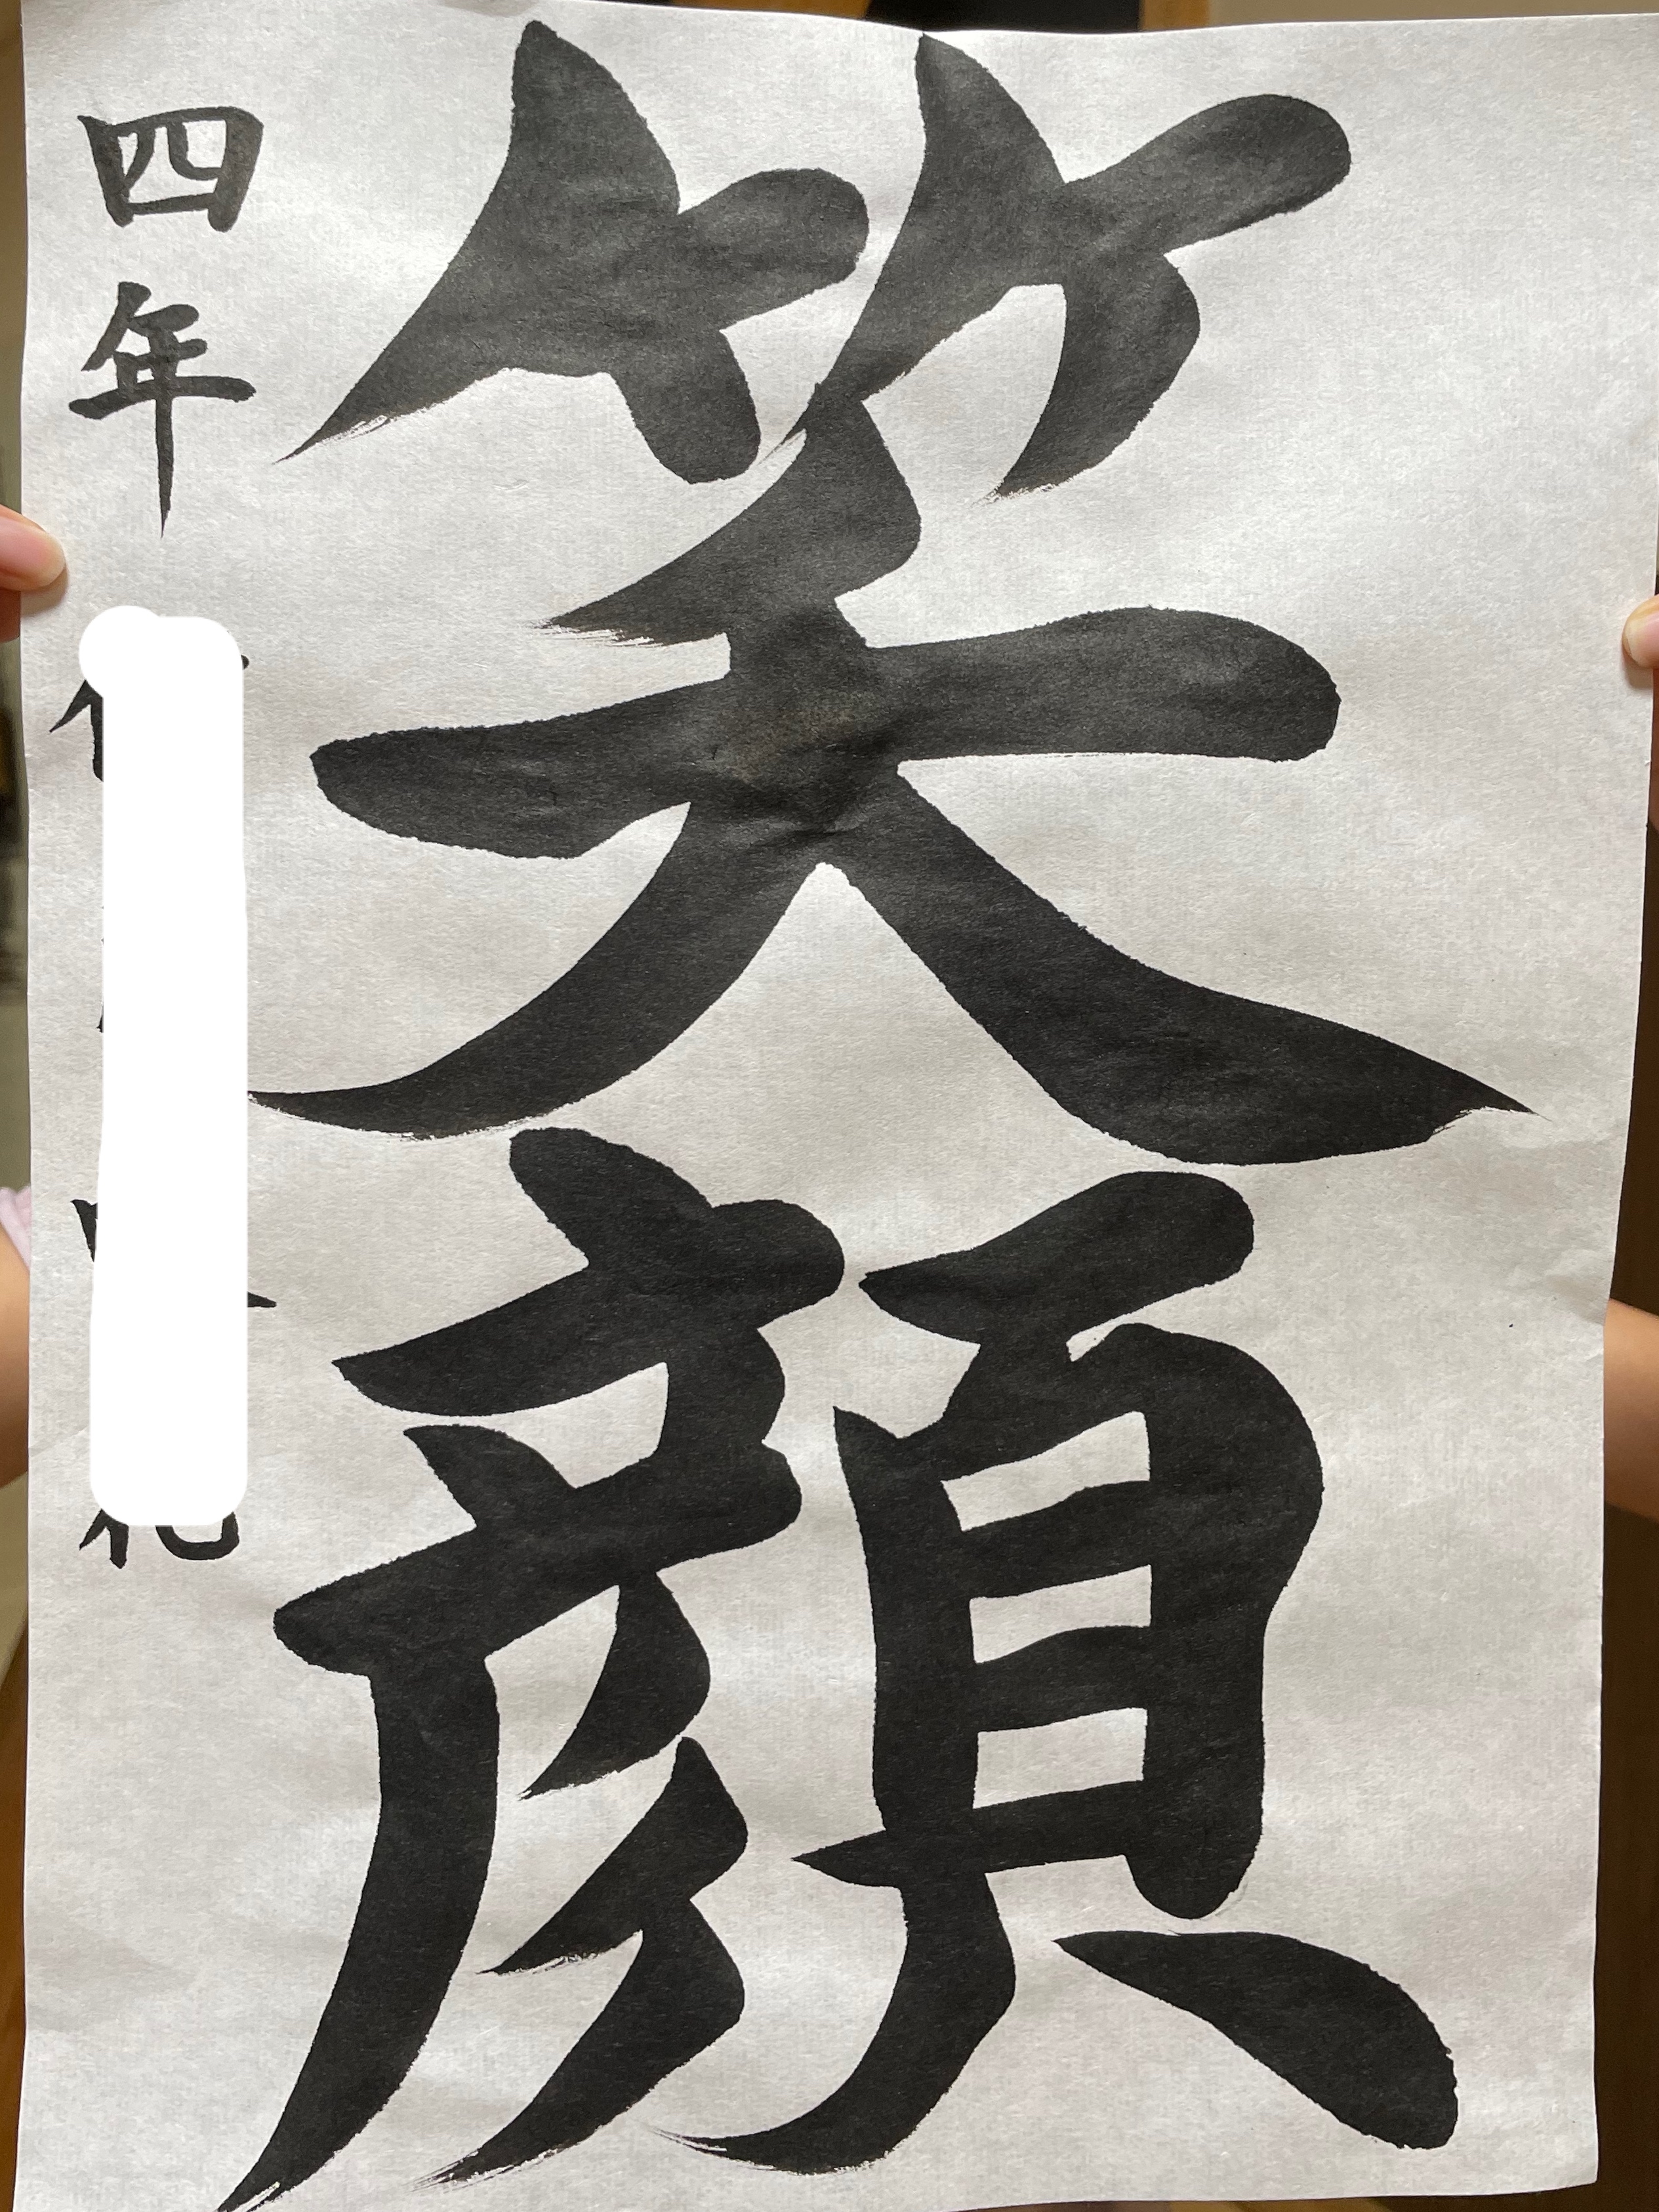 笑顔
四年